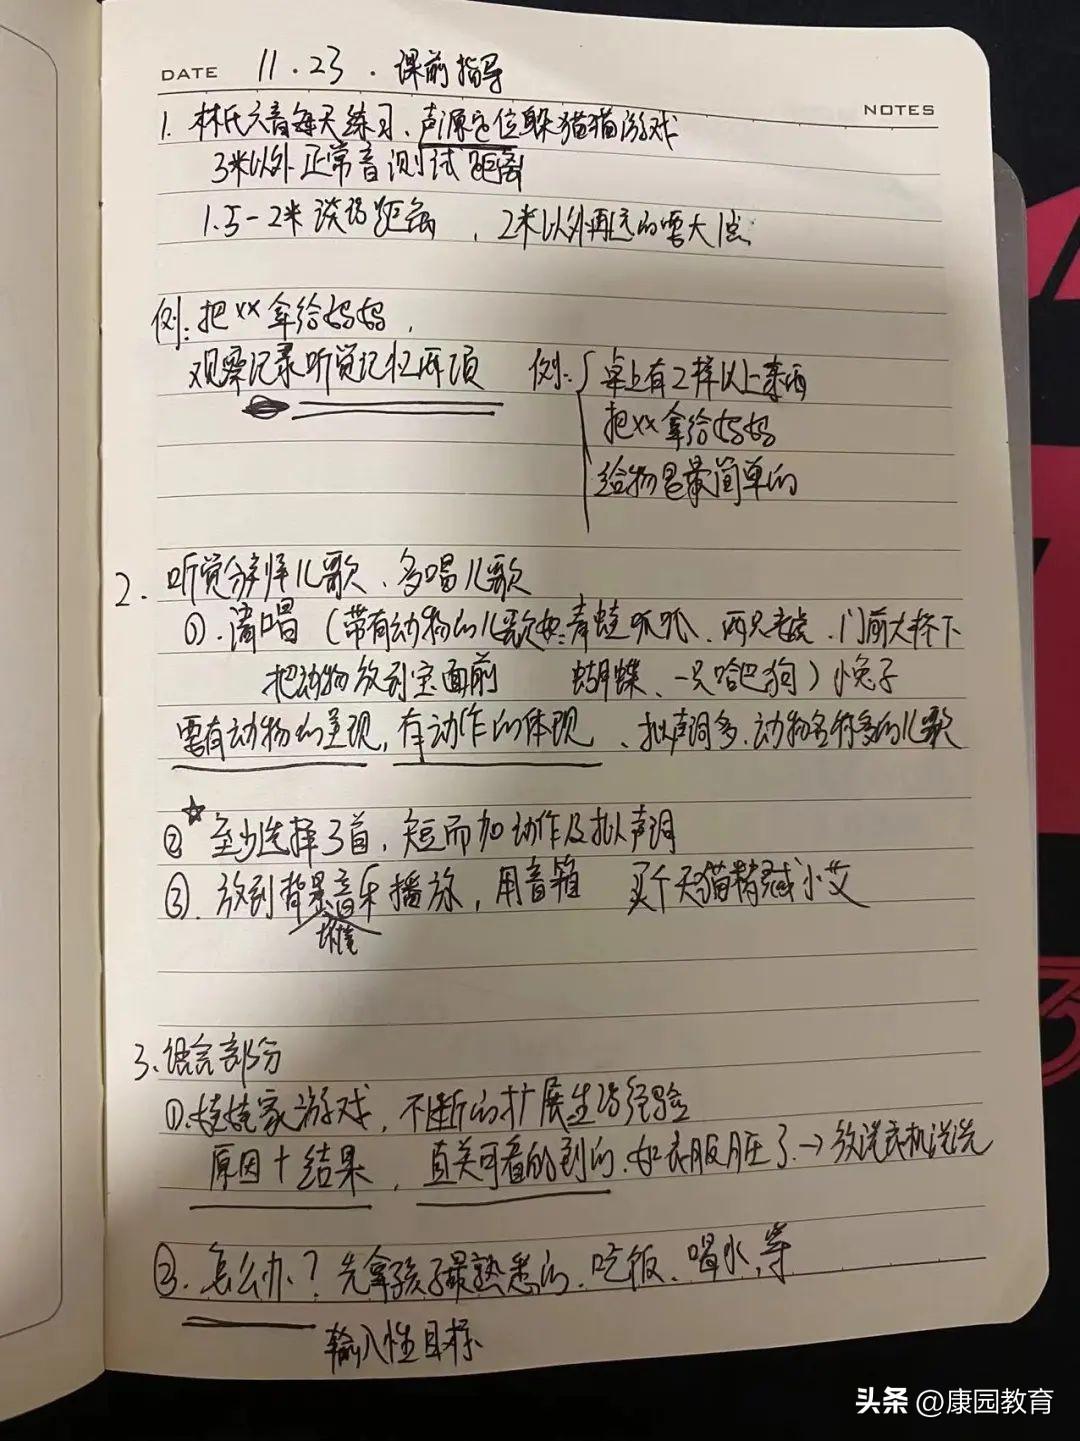 DATE 11.23.课前指导
NOTES
1. 林氏六音每天练习、声源定位躲猫猫游戏
3米以外正常音测试距离
1.5-2米谈话距离，2米以外再远的需大点
例：把xx拿给妈妈，
观察记录听觉记忆两项
例：桌上有2样以上东西
把xx拿给妈妈
给物是最简单的
2. 听觉分辨儿歌、多唱儿歌
①.清唱（带有动物的儿歌如：青蛙呱呱、两只老虎、门前大桥下
把动物放到宝面前 蝴蝶、一只哈巴狗）小兔子
需有动物的呈现，有动作的体现、拟声词多、动物名称多的儿歌
②☆至少选择3首，短而加动作及拟声词
③.放到背景音乐播放，用音箱 买个天猫精灵或小艾
3、语言部分
①.娃娃家游戏，不断的扩展生活经验
原因+结果，直关可看的到的.如衣服脏了.→放洗衣机洗洗
②.怎么办？先拿孩子最熟悉的.吃饭、喝水，等
输入性目标
头条 @康园教育